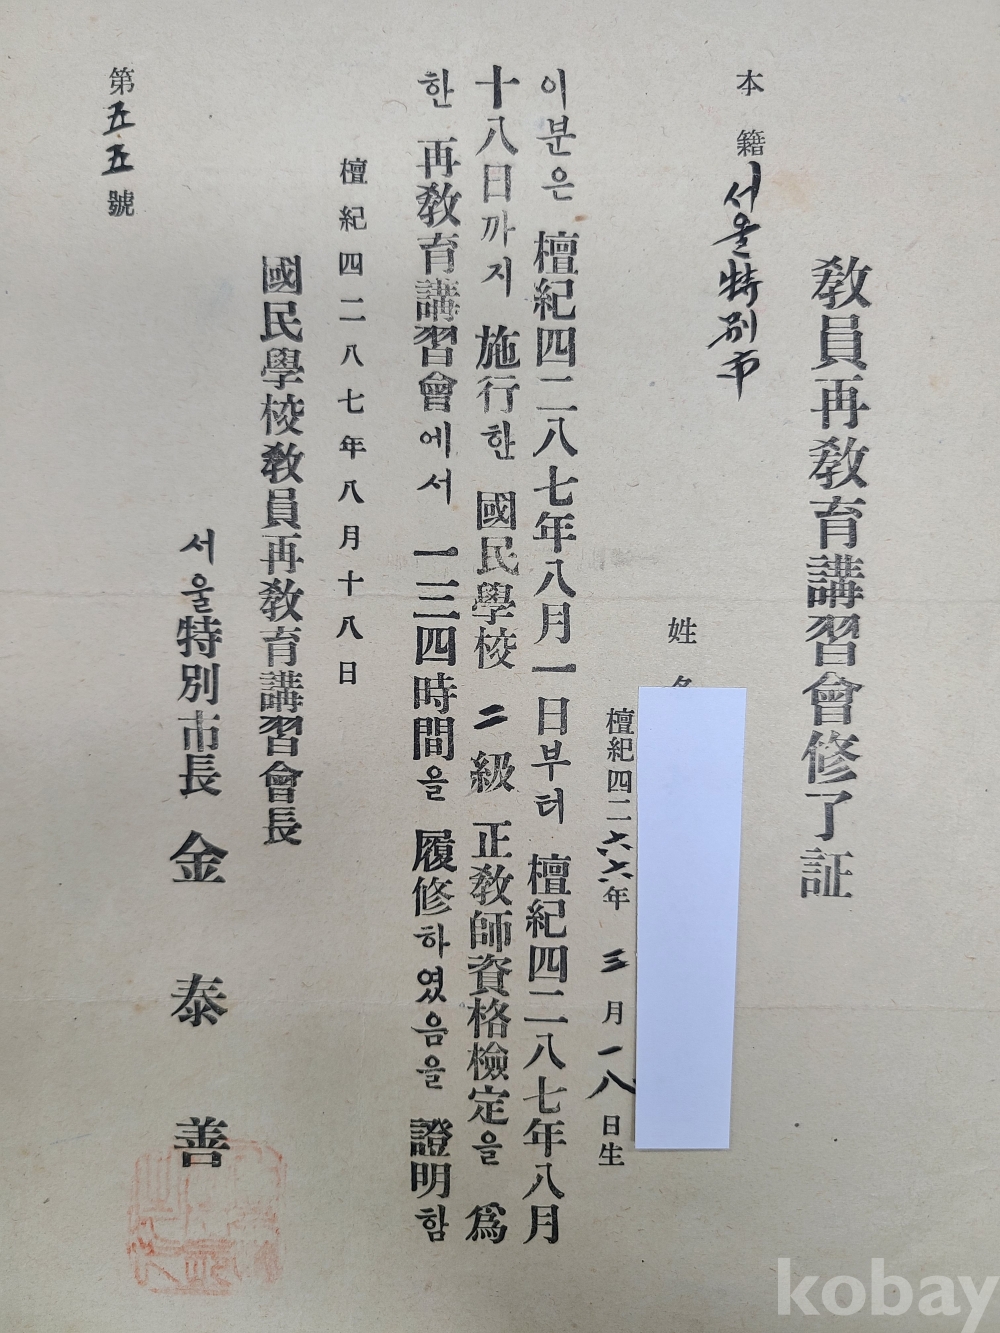 敎員再敎育講習會修了証
本籍 서울特別市
姓
檀紀四二六六年 三月一八日生
이분은 檀紀四二八七年八月一日부터 檀紀四二八七年八月
十八日까지 施行한 國民學校 二級 正敎師資格檢定을 爲
한 再敎育講習會에서 一三四時間을 履修하였음을 證明함
檀紀四二八七年八月十八日
國民學校敎員再敎育講習會長
서울特別市長 金泰善
第五五號
kobay